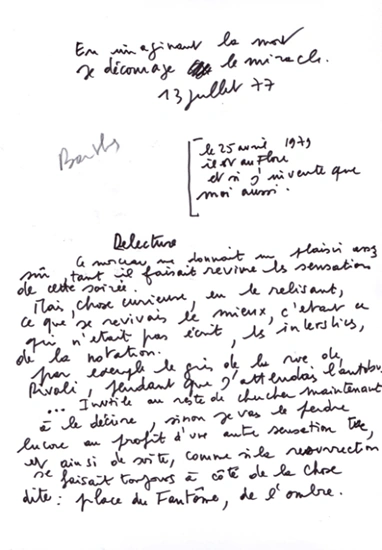 En imaginant la mort
je décourage le miracle.
13 juillet 77
Barthes
le 25 avril 1979
il est au Flore
et si j'invente que
moi aussi.
Relecture
Ce morceau me donnait un plaisir assez
sûr, tant il faisait revivre les sensations
de cette soirée.
Mais, chose curieuse, en le relisant,
ce que je revivais le mieux, c'était ce
qui n'était pas écrit, les interstices,
de la notation.
par exemple le gris de la rue de
Rivoli, pendant que j'attendais l'autobus
... Inutile au reste de chercher maintenant
à le décrire, sinon je vais le perdre
encore au profit d'une autre sensation
et ainsi de suite, comme si la résurrection
se faisait toujours à côté de la chose
dite : place du Fantôme, de l'ombre.